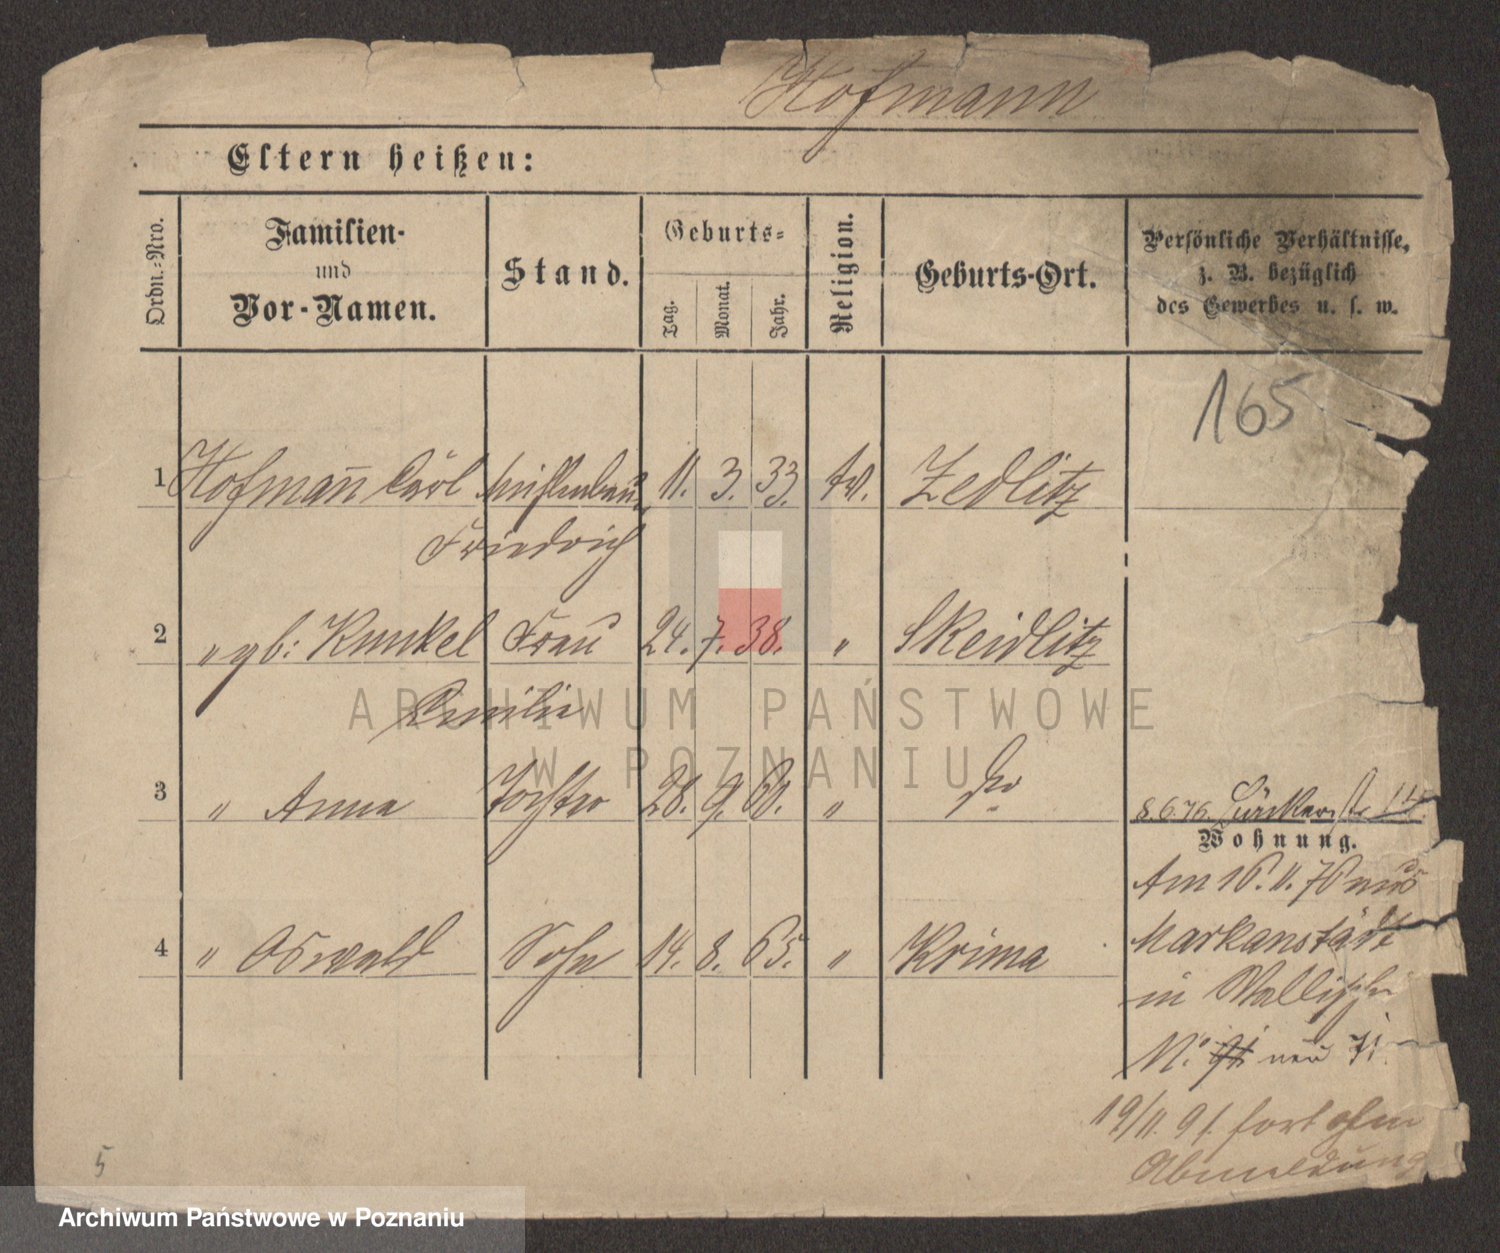 Hofmann
Eltern heißen:
Ordn.-Nro.
Familien-
und
Vor-Namen.
Stand.
Geburts-
Tag.
Monat.
Jahr.
Religion.
Geburts-Ort.
Persönliche Verhältnisse,
z. B. bezüglich
des Gewerbes u. s. w.
165
1 Hofman̄ Carl Mühlenbau 11. 3. 33. ev. Zedlitz
Friedrich
2 " gb: Kunkel Frau 24. 7. 38. " Skeidlitz
Emilie
3 " Anna Tochter 28. 9. 60. " do
8.6.76.
Wohnung.
Am 16. 11. 76 aus
Markanstädt
4 " Oswald Sohn 14. 8. 65. " Krima
in Wallischei
N: neu 71
19/11. 91. fort ohne
Abmeldung
5
ARCHIWUM PAŃSTWOWE
W POZNANIU
Archiwum Państwowe w Poznaniu